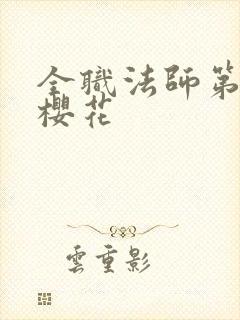 全職法師第
櫻花
雲重影